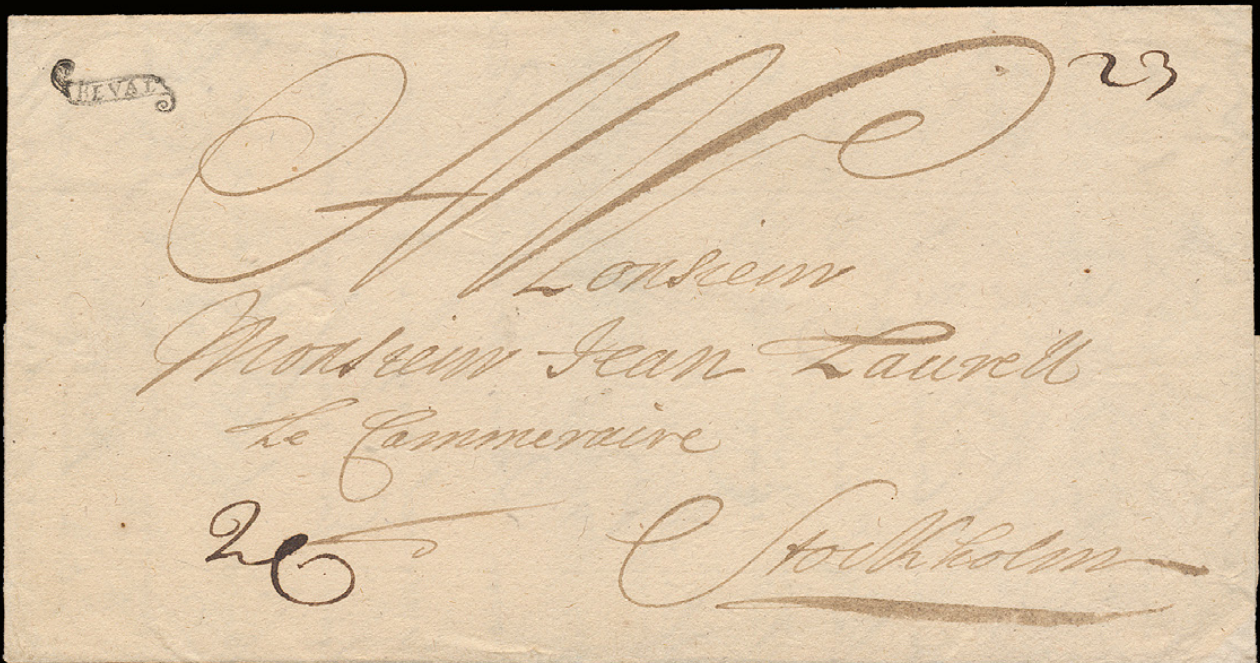 REVAL
23
A Monsieur
Monsieur Jean Laurell
Le Commeraire
26
à Stockholm